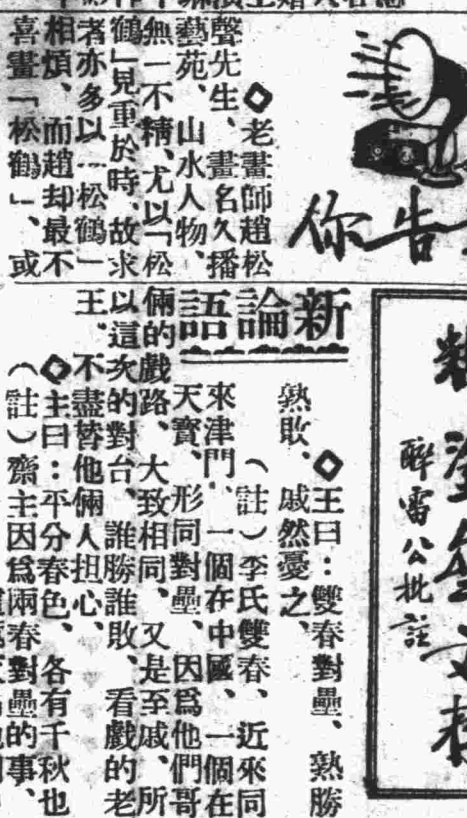 告
你
◇老畫師趙松
聲先生、畫名久播
藝苑、山水人物、
無一不精、尤以「松
鶴」見重於時、故求
者亦多以「松鶴」
相煩、而趙却最不
喜畫「松鶴」、或
醉雷公批註
新論語
◇王曰：雙春對壘、熟勝
熟敗、戚然憂之、
（註）李氏雙春、近來同
來津門、一個在中國、一個在
天寶、形同對壘、因爲他們哥
倆的戲路、大致相同、又是至戚、所
以這次的對台、誰勝誰敗、看戲的老
王、不盡替他倆人担心、
◇主曰：平分春色、各有千秋也
（註）齋主因爲兩春對壘的事、